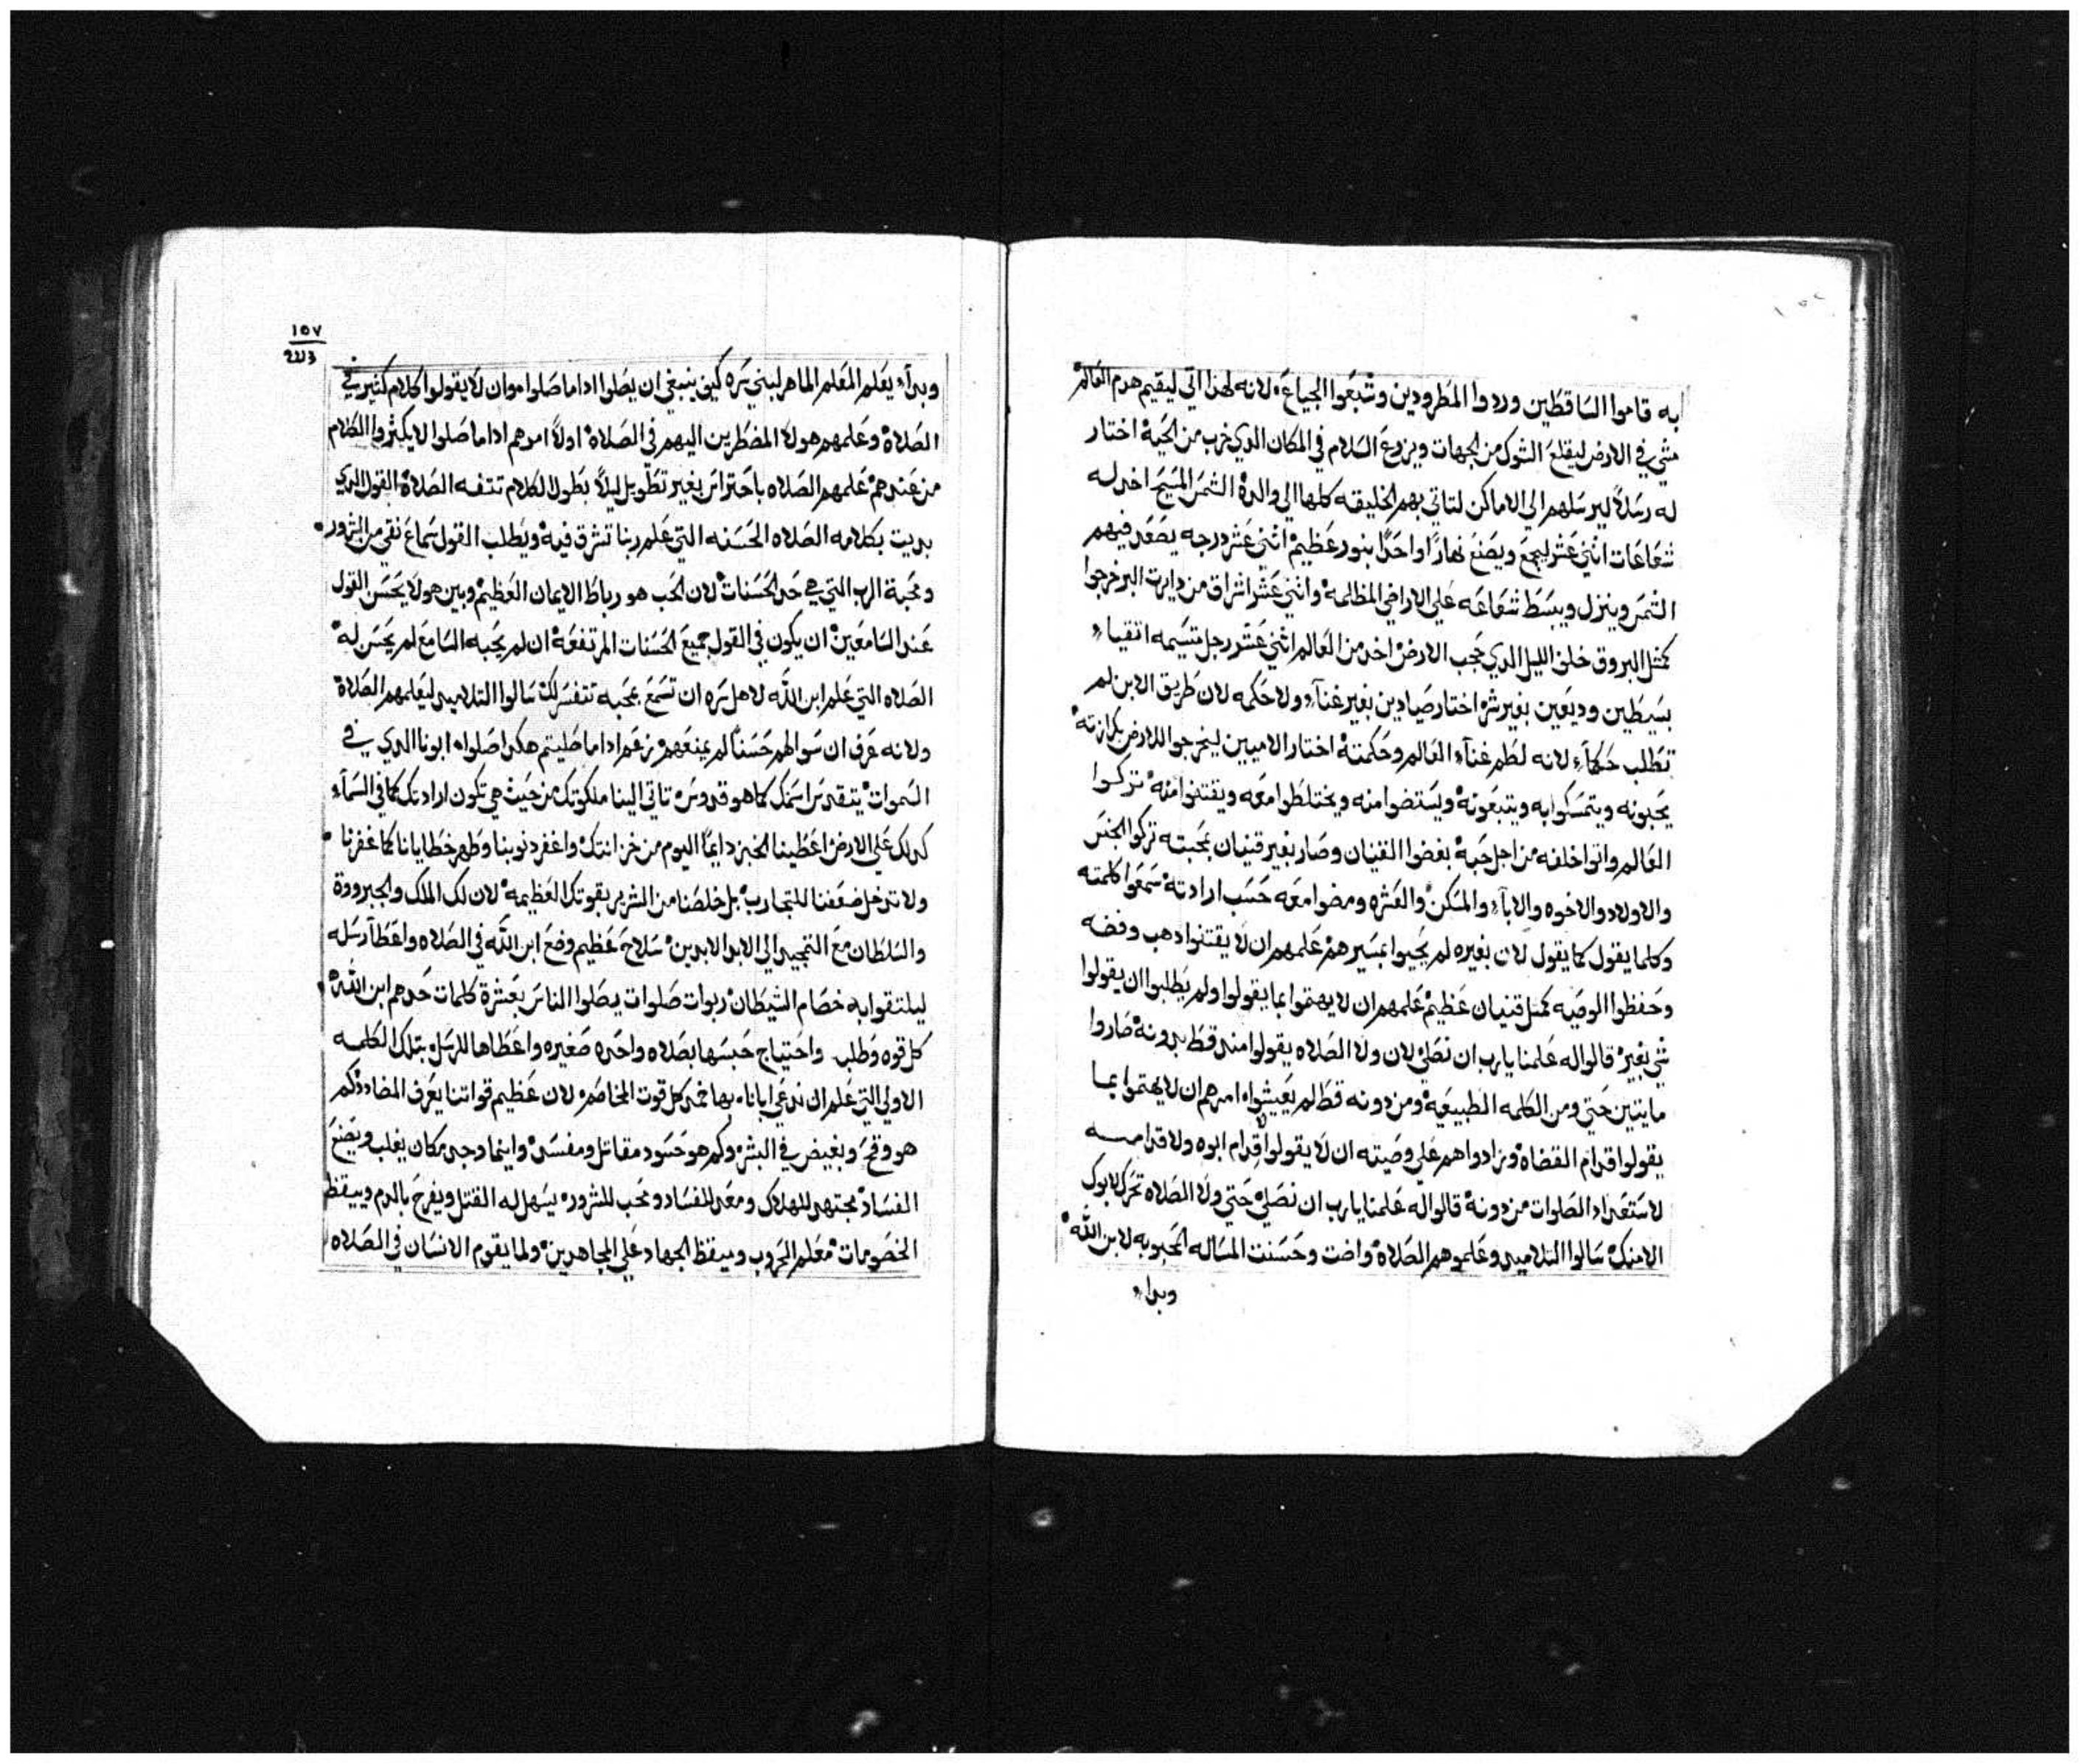 به قاموا الساقطين وردوا المطرودين وشبعوا الجياع، لانه لهذا اتي ليقيم هدم العالم
مشي في الارض ليقلع الشوك من الجهات ويزرع السلام في المكان الدي خرب من الحيه اختار
له رسلاً ليرسلهم الي الاماكن لتاتي بهم الخليقه كلها الي والده الشمس المسيح اخد له
شعاعات اثني عشر ليجمع ويصنع نهارًا واحدًا بنور عظيم اثني عشر درجه يصعد فيهم
الشمس وينزل ويبسط شعاعه علي الاراضي المظلمه واثني عشر اشراق من دايرت البر خرجوا
كمثل البروق خلف الليل الدي حجب الارض اخد من العالم اثني عشر رجل متسيمه اتقياء
بسيطين وديعين بغير شر اختار صيادين بغير غناء ولا حكمه لان طريق الابن لم
تطلب حكماء لانه لطم غناء العالم وحكمته اختار الاميين ليخرجوا للارض بكرازته
يحبونه ويتمسكوا به ويتبعونه ويستضوا منه ويختلطوا معه ويقتنوا منه تركوا
العالم واتوا خلفه من اجل حبه بغضوا القنيان وصار بغير قنيان بمحبته تركوا الجنس
والاولاد والاخوه والاباء والمسكن والعشره ومضوا معه حسب ارادته سمعوا كلمته
وكلما يقول كما يقول لان بغيره لم يحيوا بمسيرهم علمهم ان لا يقتنوا دهب وفضه
وحفظوا الوصيه كمثل قنيان عظيم علمهم ان لا يهتموا بما يقولوا ولم يطلبوا ان يقولوا
شي بغير قالوا له علمنا يا رب ان نصلي لان ولا الصلاه يقولوا منه قط بدونه صاروا
مايتين حتي ومن الكلمه الطبيعيه ومن دونه قط لم يعيشوا، امرهم ان لا يهتموا بما
يقولوا قدام القضاه وزادوا هم علي وصيته ان لا يقولوا قدام ابوه ولا قدامه
لاستعداد الصلوات من دونه قالوا له علمنا يا رب ان نصلي حتي ولا الصلاه تحرك لابوك
الا منك سالوا التلاميد وعلموهم الصلاه واضت وحسنت المساله المحبوبه لابن الله
وبداء
١٥٧
وبداء يعلم المعلم الماهر لبني سره كيف ينبغي ان يصلوا ادا ما صلوا، وان لا يقولوا كلام كثير في
الصلاه وعلمهم هولا المضطرين اليهم في الصلاه اولاً امرهم ادا ما صلوا لا يكثروا الكلام
من عندهم علمهم الصلاه باحتراس بغير تطويل ليلاً بطول الكلام تتفه الصلاه القول الدي
بديت بكلامه الصلاه الحسنه التي علم ربنا تشرق فيه ويطلب القول سماع نقي من الشرور
ومحبة الرب التي هي حد الحسنات لان الحب هو رباط الايمان العظيم وبين هولا يحسن القول
عند السامعين ان يكون في القول جميع الحسنات المرتفعه ان لم يحبه السامع لم يحسن له
الصلاه التي علم ابن الله لاهل سره ان تسمع بمحبه تتفسر لك سالوا التلاميد ليعلمهم الصلاة
ولانه عرف ان سوالهم حسناً لم يمنعهم وزعم ادا ما صليتم هكدا صلوا، ابونا الدي في
السموات يتقدس اسمك كما هو قدوس تاتي الينا ملكوتك من حيث هي تكون ارادتك كما في السماء
كدلك علي الارض اعطينا الخبز دايمًا اليوم من خزانتك واغفر دنوبنا وطهر خطايانا كما غفرنا
ولا تدخل ضعفنا للتجارب بل خلصنا من الشرير بقوتك العظيمه لان لك الملك والجبرووة
والسلطان مع التمجيد الي الابد الابدين سلاح عظيم وضع ابن الله في الصلاه واعطا رسله
ليلتقوا به خصام الشيطان ربوات صلوات يصلوا الناس بعشرة كلمات حدهم ابن الله
كل قوه وطلب واحتياج حبسها بصلاه واحده صغيره واعطاها للرسل بتلك الكلمه
الاولي التي علم ان ندعي ابانا، بها خمد كل قوت المخاصم لان عظيم قواتنا يعرف المضادد كم
هو وقح وبغيض في البشر وكم هو حسود مقاتل ومفسد واينما وجد مكان يغلب ويصنع
الفساد مجتهد للهلاك ومعد للفساد ومحب للشرور يسهل له القتل ويفرح بالدم وييقظ
الخصومات معلم الحروب وميقظ الجهاد علي المجاهدين ولما يقوم الانسان في الصلاه